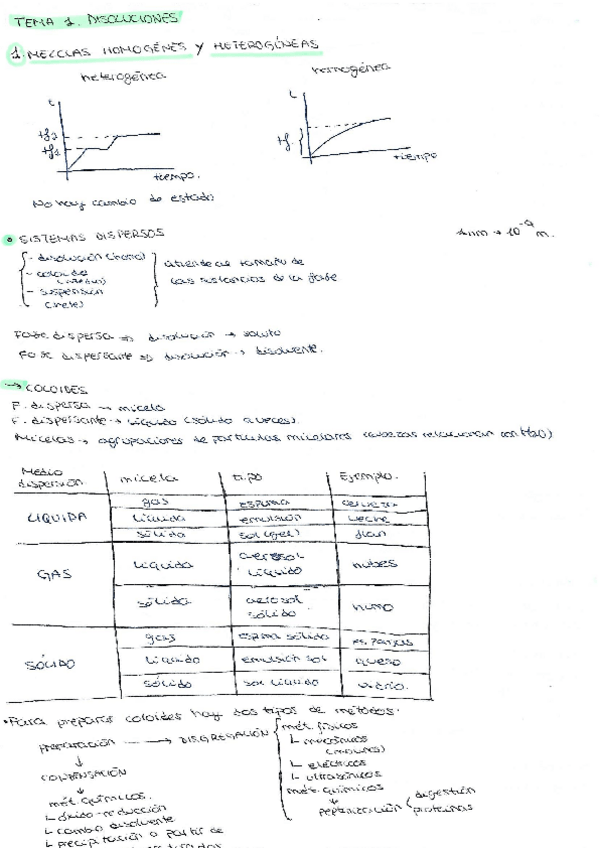 TEMA 1. DISOLUCIONES
1. MEZCLAS HOMOGÉNES Y HETEROGÉNEAS
heterogénea
homogénea
t
tf2
tf1
tiempo.
t
tf
tiempo
No hay cambio de estado
• SISTEMAS DISPERSOS
1nm → 10⁻⁹ m.
- disolución (nano)
- coloide
- suspensión
atiende al tamaño de
las sustancias de la fase
Fase dispersa => disolución → soluto
Fase dispersante => disolución → disolvente.
→ COLOIDES
F. dispersa → micela
F. dispersante → líquido (sólido a veces).
Micelas → agrupaciones de partículas micelares (cabezas relacionan con H2O)
Medio dispersión micela tipo Ejemplo.
LÍQUIDA
gas espuma cerveza
líquida emulsión leche
sólida sol (gel) flan
GAS
líquido aerosol líquido nubes
sólido aerosol sólido humo
SÓLIDO
gas espuma sólida
líquido emulsión sol queso
sólido sol líquido vidrio.
• Para preparar coloides hay dos tipos de métodos.
preparación → DISGREGACIÓN
mét. físicos
mecánicos
eléctricos
ultrasónicos
mét. químicos
peptización
digestión
proteínas
CONDENSACIÓN
mét. químicos.
óxido-reducción
cambio disolvente
precipitación a partir de